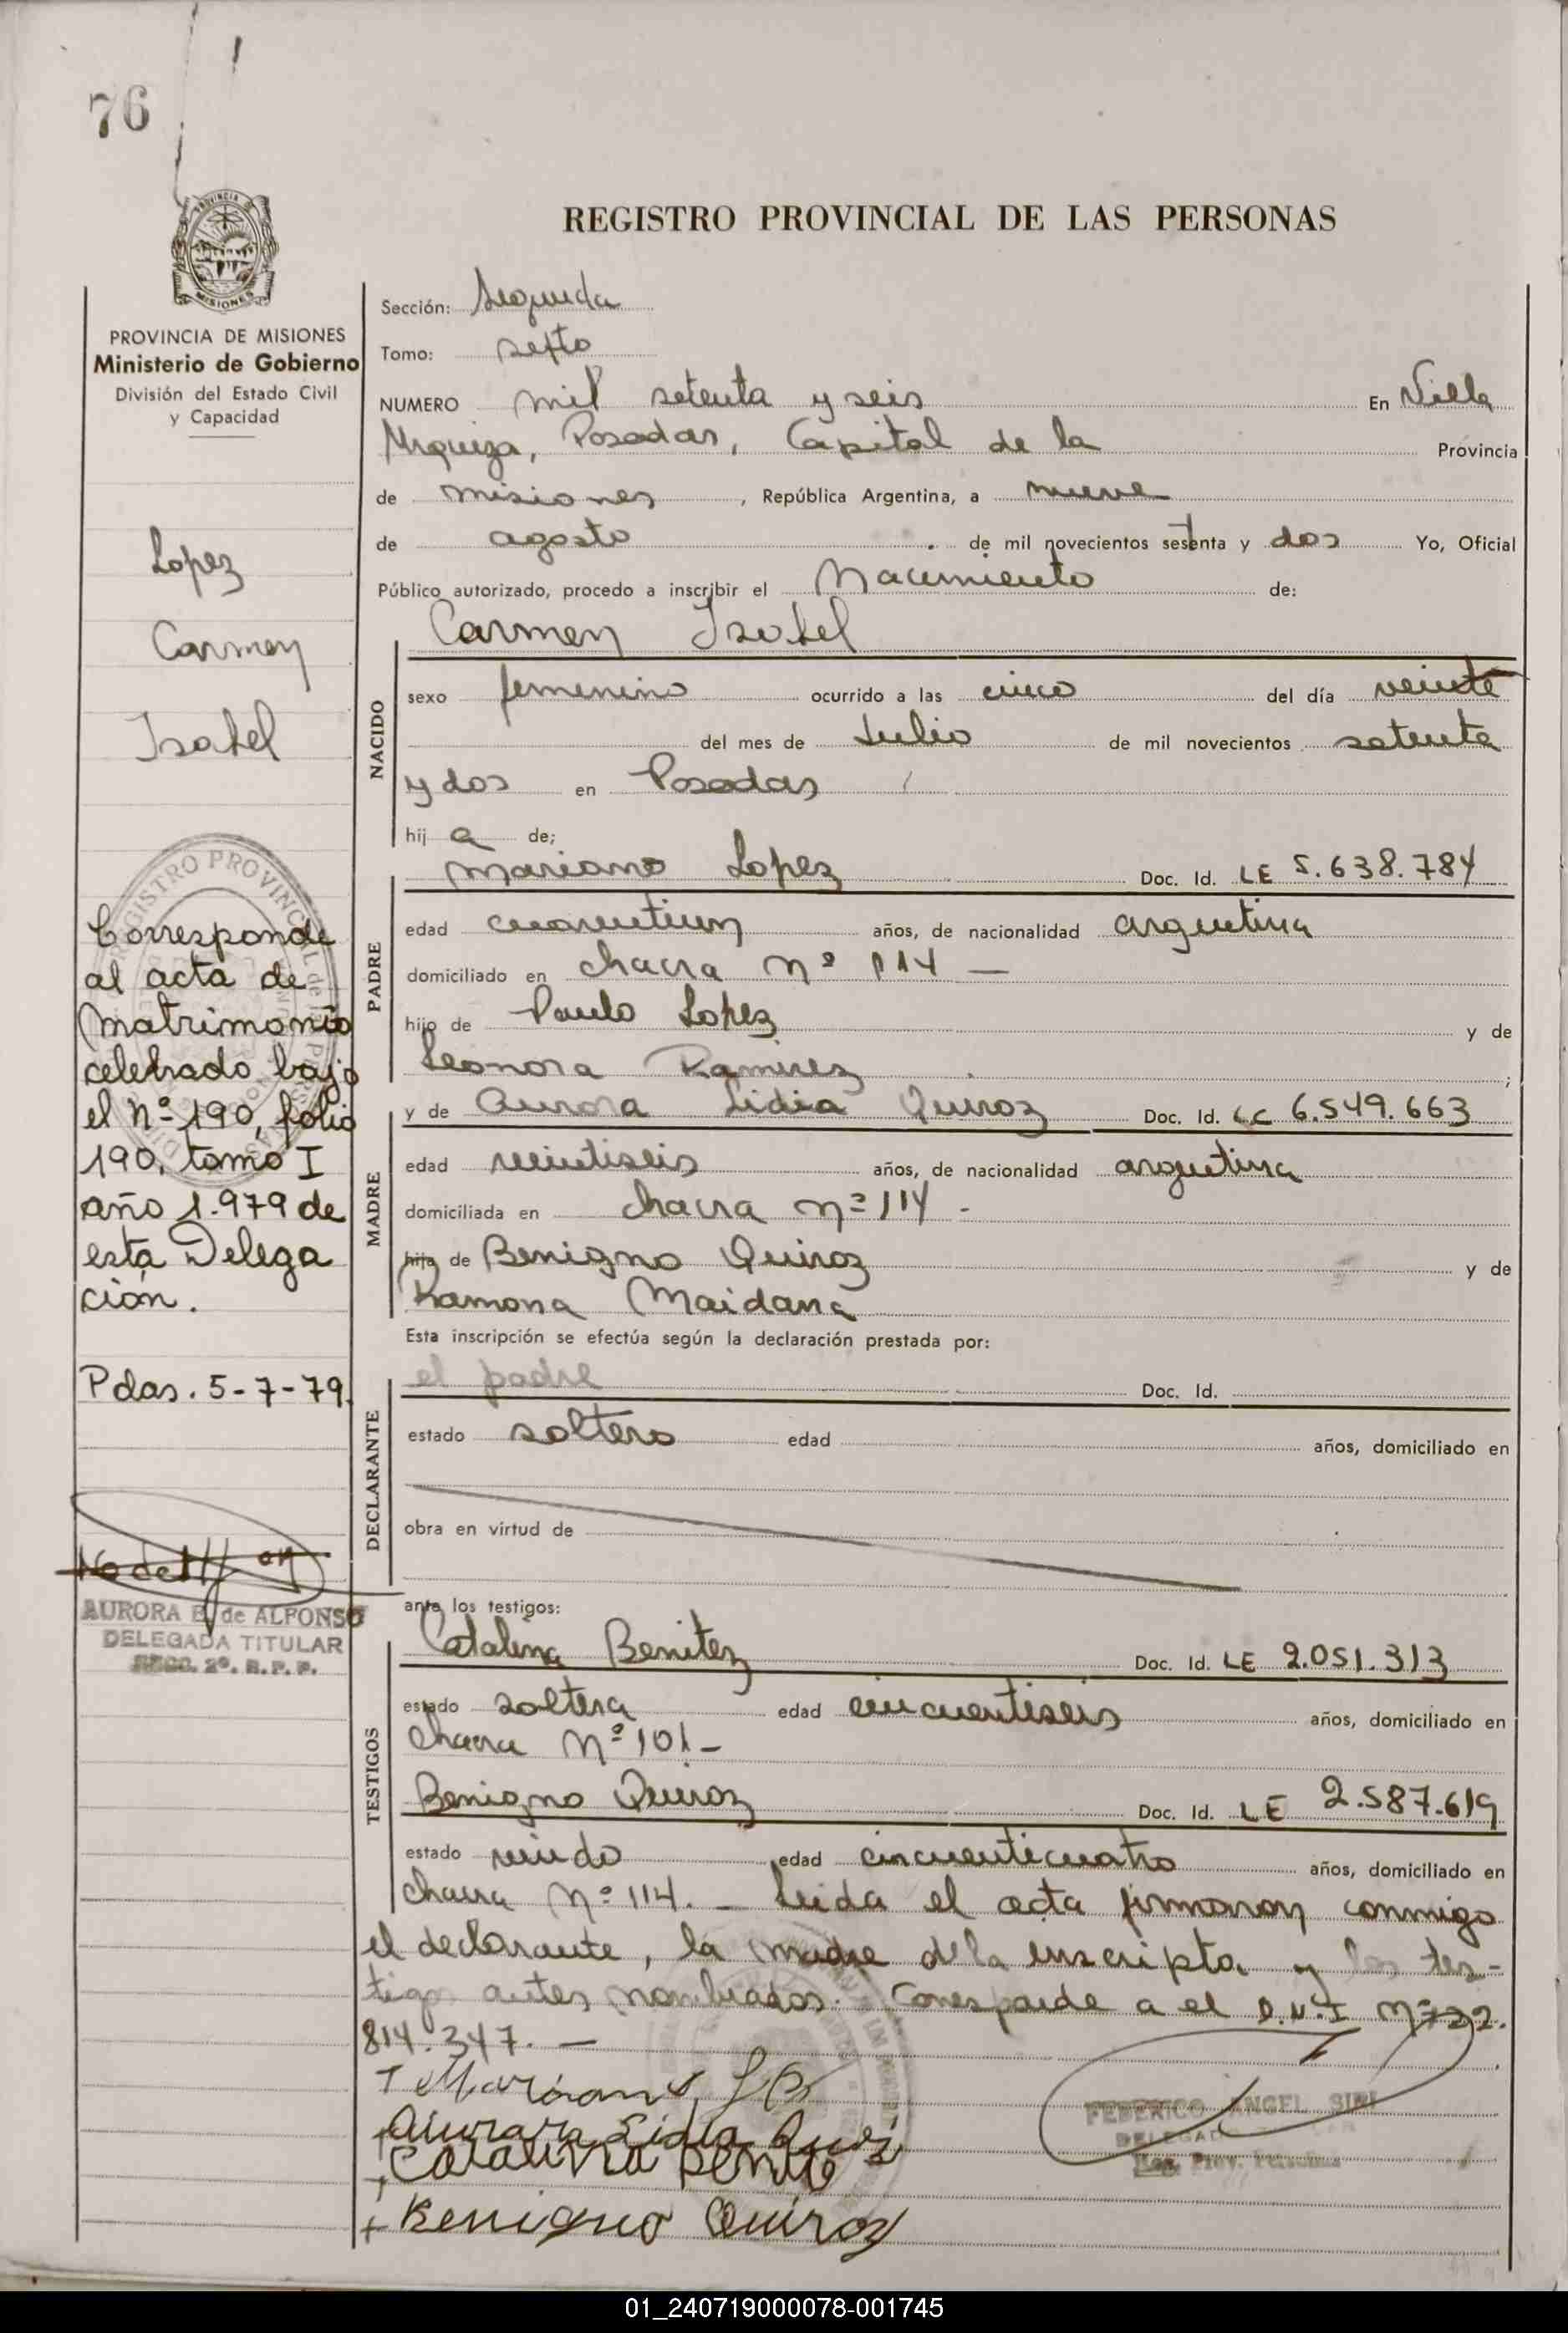 76
REGISTRO PROVINCIAL DE LAS PERSONAS
PROVINCIA DE MISIONES
Ministerio de Gobierno
División del Estado Civil
y Capacidad
Lopez
Carmen
Isabel
Corresponde
al acta de
Matrimonio
celebrado bajo
el Nº 190, folio
190, tomo I
año 1.979 de
esta Delega
ción.
Pdas. 5-7-79.
AURORA E. de ALFONSO
DELEGADA TITULAR
SECC. 2º. R.P.P.
Sección: Segunda
Tomo: sexto
NUMERO mil setenta y seis En Villa
Urquiza, Posadas, Capital de la Provincia
de misiones, República Argentina, a nueve
de agosto de mil novecientos setenta y dos Yo, Oficial
Público autorizado, procedo a inscribir el Nacimiento de:
Carmen Isabel
NACIDO
sexo femenino ocurrido a las cinco del día veinte
del mes de Julio de mil novecientos setenta
y dos en Posadas
hij a de;
Mariano Lopez Doc. Id. LE 5.638.784
PADRE
edad cuarentiun años, de nacionalidad argentina
domiciliado en chacra Nº 114 —
hijo de Paulo Lopez y de
Leonora Ramirez ;
y de Aurora Lidia Quiroz Doc. Id. LC 6.549.663
MADRE
edad veintiseis años, de nacionalidad argentina
domiciliada en chacra nº 114 -
hija de Benigno Quiroz y de
Ramona Maidana
Esta inscripción se efectúa según la declaración prestada por:
el padre Doc. Id.
DECLARANTE
estado soltero edad años, domiciliado en
obra en virtud de
ante los testigos:
Catalina Benitez Doc. Id. LE 2.051.313
TESTIGOS
estado soltera edad cincuentiseis años, domiciliado en
chacra Nº 101 -
Benigno Quiroz Doc. Id. LE 2.587.619
estado viudo edad cincuenticuatro años, domiciliado en
chacra Nº 114. - Leida el acta firmaron conmigo
el declarante, la madre dela inscripta y los tes-
tigos antes nombrados. Corresponde a el D.N.I Nº 22.
814.347. —
Mariano
Aurora Lidia
Catalina Benite
Benigno Quiroz
FEDERICO ANGEL SIRI
DELEGAD
Reg. Prov. Personas
01_240719000078-001745